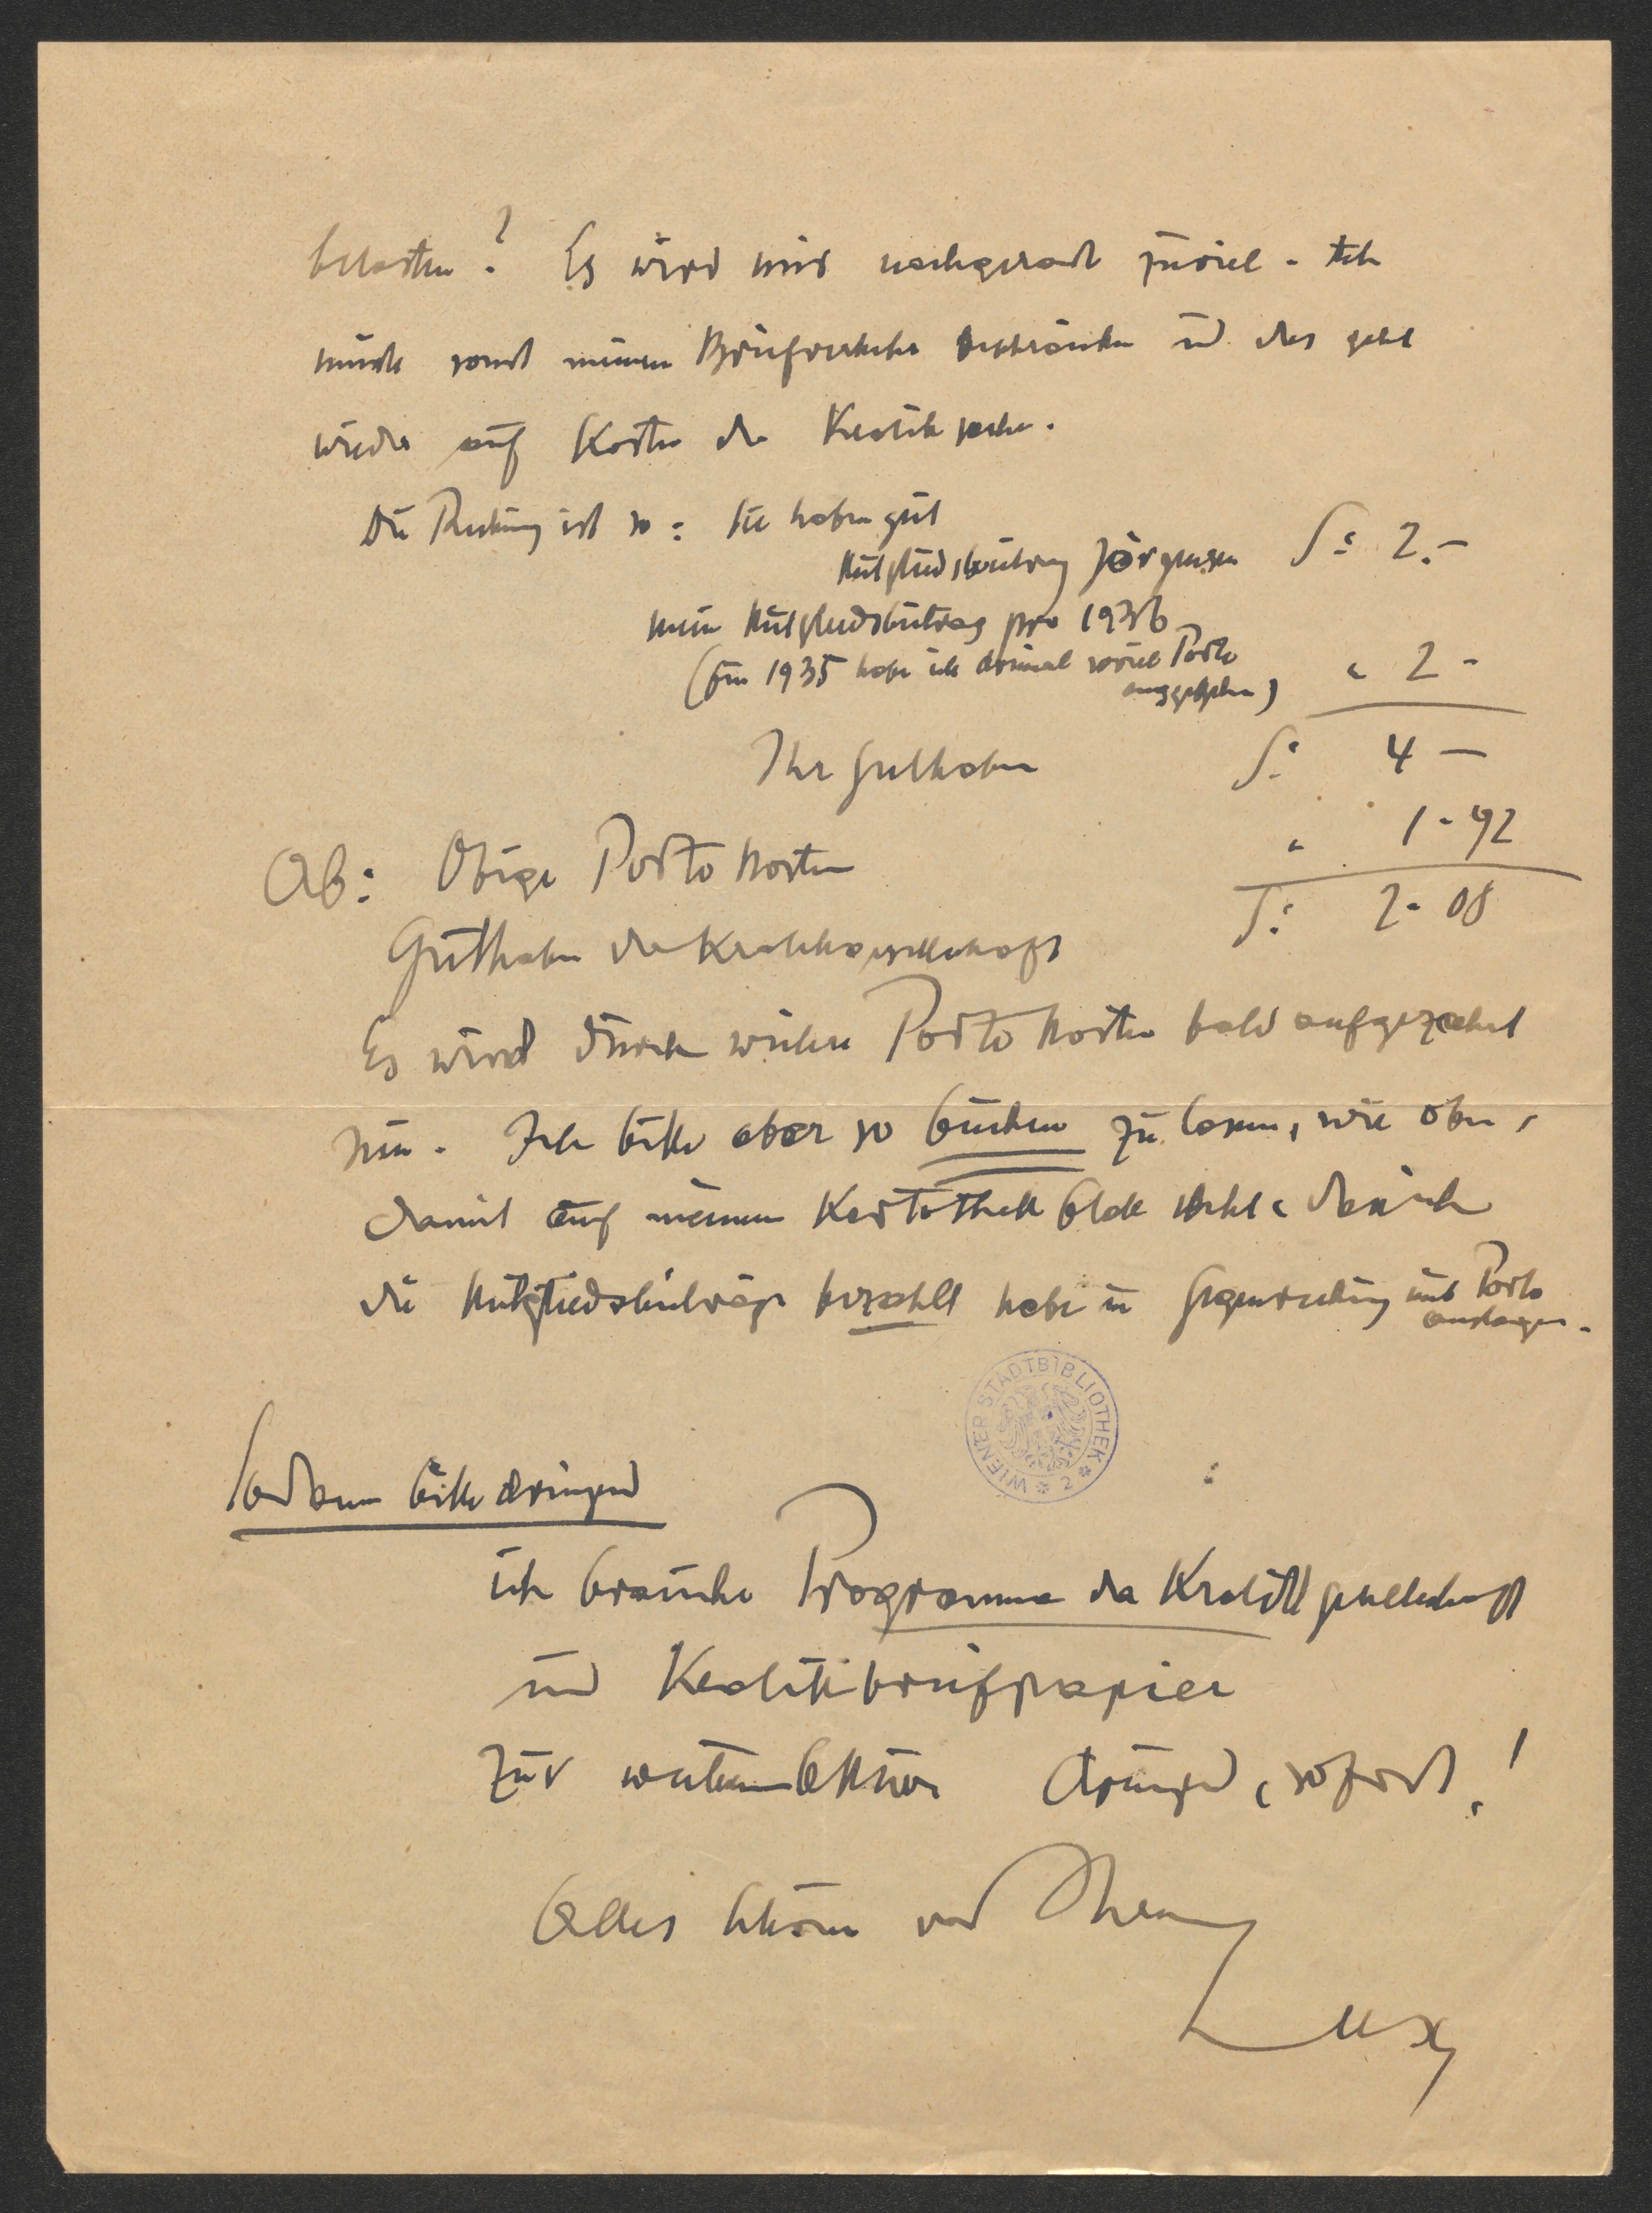 belasten? Es wird mir nachgerade zuviel. Ich
müsste sonst meinen Briefverkehr beschränken u. das geht
wieder auf Kosten der Kralik sache.
Die Rechnung ist so: Sie haben gut
Mitgliedsbeitrag Jörgensen S: 2.–
mein Mitgliedsbeitrag pro 1936
(für 1935 habe ich dreimal soviel Porto
ausgegeben) " 2 –
Ihr Guthaben S: 4 –
Ab: Obige Porto kosten " 1·92
Guthaben der Kralikgesellschaft S: 2·08
Es wird durch weitere Porto kosten bald aufgezehrt
sein. Ich bitte aber so buchen zu lassen, wie oben,
damit auf meinem Kartothek blatt steht, dass ich
die Mitgliedsbeiträge bezahlt habe in Gegenrechnung mit Porto
auslagen.
WIENER STADTBIBLIOTHEK * 2 *
Sodann bitte dringend
ich brauche Programme der Kralikgesellschaft
und Kralikbriefpapier
zur dringend, sofort!
Alles Schöne von Ihrem
Lux